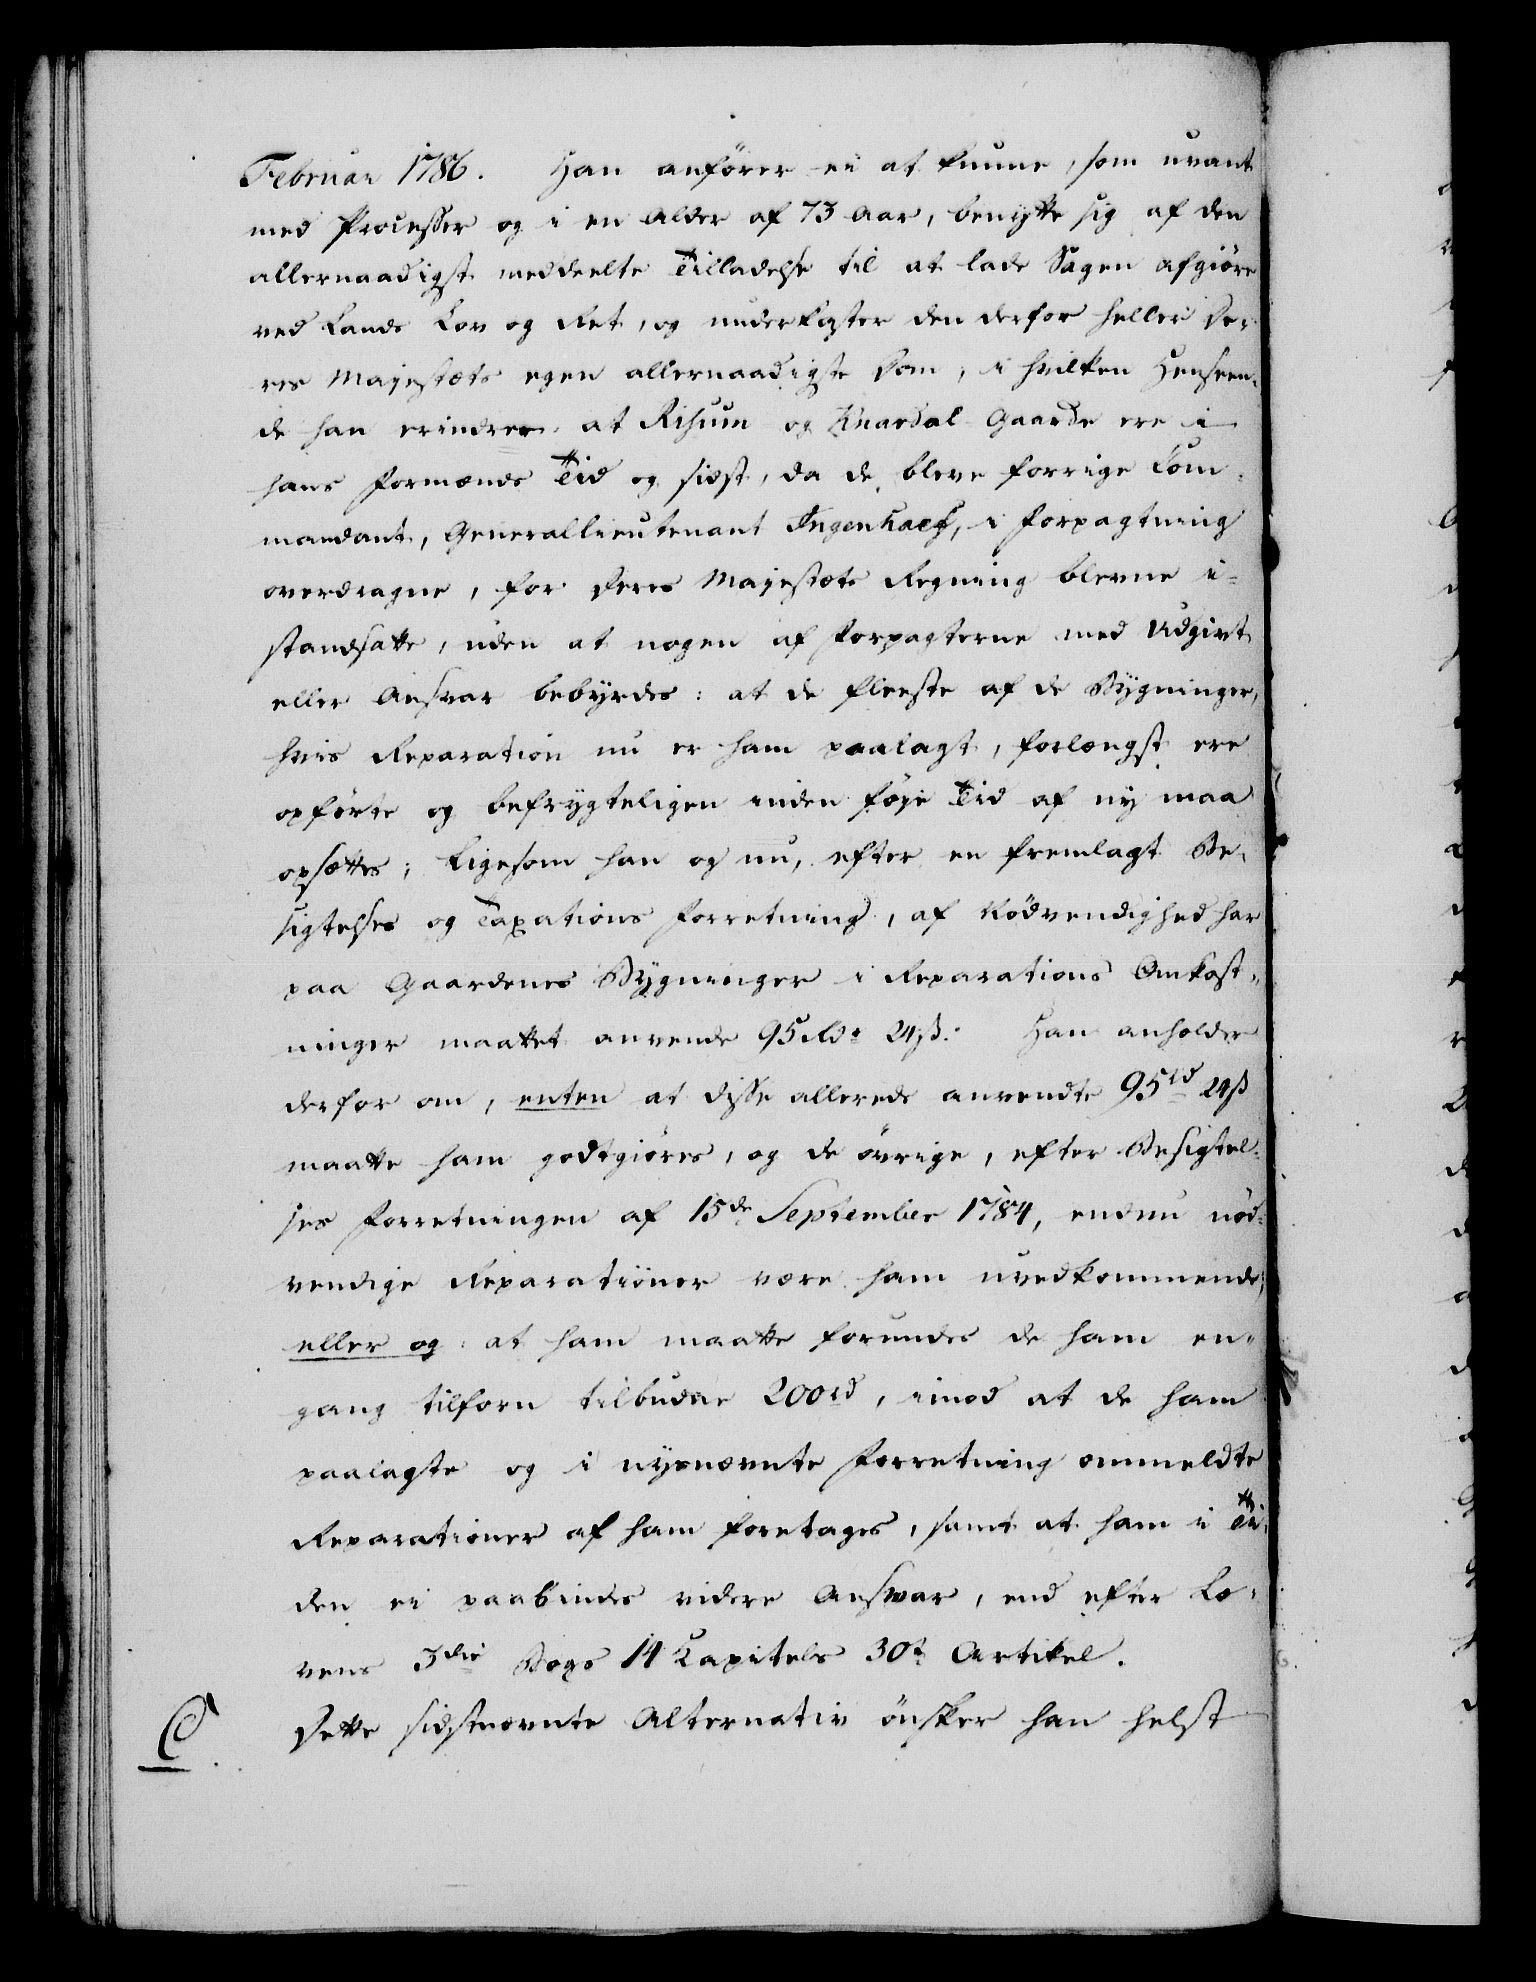 Februar 1786. Han anfører ei at kunne, som uvant
med Processer og i en Alder af 73 Aar, benytte sig af den
allernaadigst meddeelte Tilladelse til at lade Sagen afgiøre
ved Lands Lov og Ret, og underkaster den derfor heller De-
res Majestæts egen allernaadigste Dom, i hvilken Henseen-
de han erindrer at Risum og Knardal Gaarde ere i
hans Formænds Tid og sidst, da de bleve forrige Com-
mandant, Generallieutenant Ingenhaef, i Forpagtning
overdragne, for Deres Majestæts Regning blevne i-
standsatte, uden at nogen af Forpagterne med Udgivt
eller Ansvar bebyrdes: at de fleeste af de Bygninger,
hvis Reparation nu er ham paalagt, forlængst ere
opførte og befrygteligen inden føje Tid af ny maa
opsættes; Ligesom han og nu, efter en fremlagt Be-
sigtelses og Taxations Forretning, af Nødvendighed har
paa Gaardenes Bygninger i Reparations Omkost-
ninger maattet anvende 95 Rd. 24 ß. Han anholder
derfor om, enten at disse allerede anvendte 95 rd 24 ß
maatte ham godtgiøres, og de øvrige, efter Besigtel-
ses Forretningen af 15de September 1784, endnu nød-
vendige Reparationer være ham uvedkommende,
eller og: at ham maatte forundes de ham en-
gang tilforn tilbudne 200 rd, imod at de ham
paalagte og i nysnævnte Forretning ommeldte
Reparationer af ham foretages, samt at ham i Ti-
den ei paabindes videre Ansvar, end efter Lo-
vens 3die Bogs 14 Kapitels 30te Artikel.
C. Dette sidstnævnte Alternativ ønsker han helst